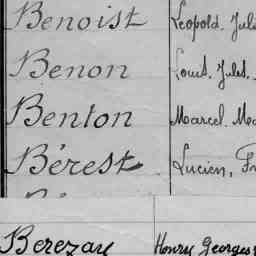 Benoist Léopold, Jul
Benon Louis, Jules,
Benton Marcel Ma
Bérest Lucien, Fr
Berezay Henry Georges